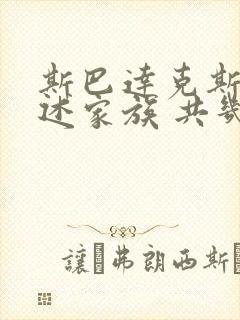 斯巴達克斯
述家族 共
讓 弗朗西斯